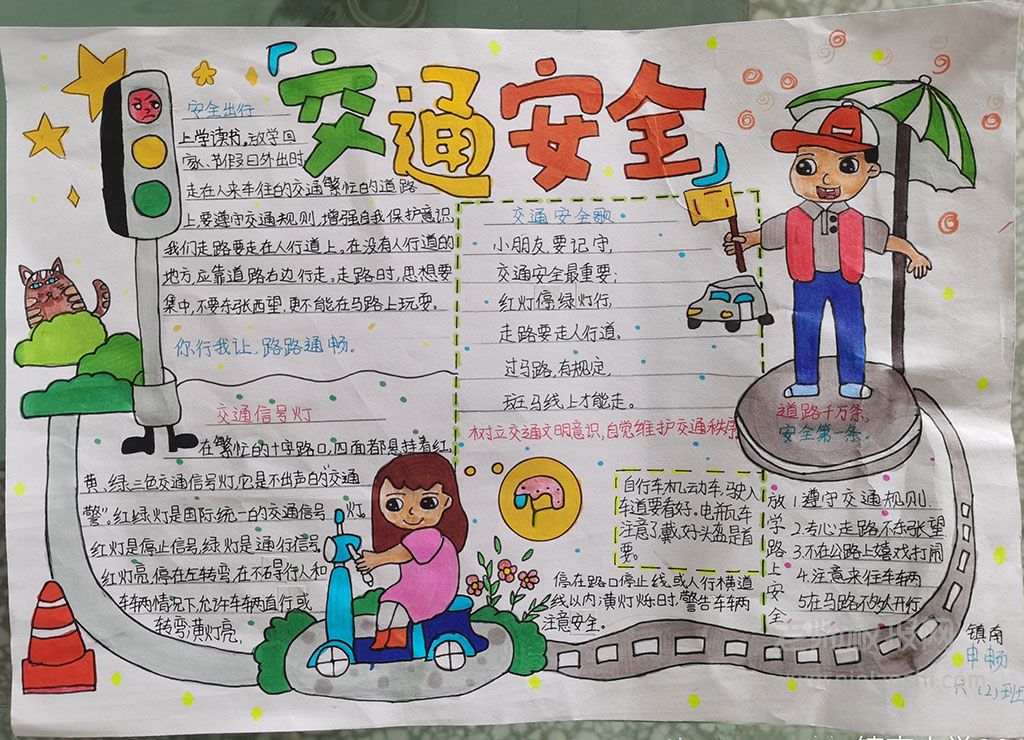 交通安全
安全出行
上学读书,放学回
家、节假日外出时
走在人来车往的交通繁忙的道路
上,要遵守交通规则,增强自我保护意识,
我们走路要走在人行道上。在没有人行道的
地方,应靠道路右边行走。走路时,思想要
集中,不要东张西望,更不能在马路上玩耍。
你行我让,路路通畅。
交通安全歌
小朋友,要记守,
交通安全最重要;
红灯停,绿灯行,
走路要走人行道。
过马路,有规定,
斑马线上才能走。
树立交通文明意识,自觉维护交通秩序
交通信号灯
在繁忙的十字路口,四面都悬挂着红,
黄、绿、三色交通信号灯,它是不出声的“交通
警”。红绿灯是国际统一的交通信号灯
红灯是停止信号,绿灯是通行信号
红灯亮,停在左转弯,在不碍行人和
车辆情况下,允许车辆直行或
转弯,黄灯亮,
停在路口停止线,或人行横道
线以内,黄灯烁时,警告车辆
注意安全。
自行车,机动车,驶入
车道要看好。电开瓦车
注意了,戴好头盔是首
要。
道路千万条,
安全第一条.
放学路上安全
1.遵守交通规则.
2.专心走路不东张望
3.不在公路上嬉戏打闹
4.注意来往车辆
5在马路不伙开行
镇南
申畅
六(2)班